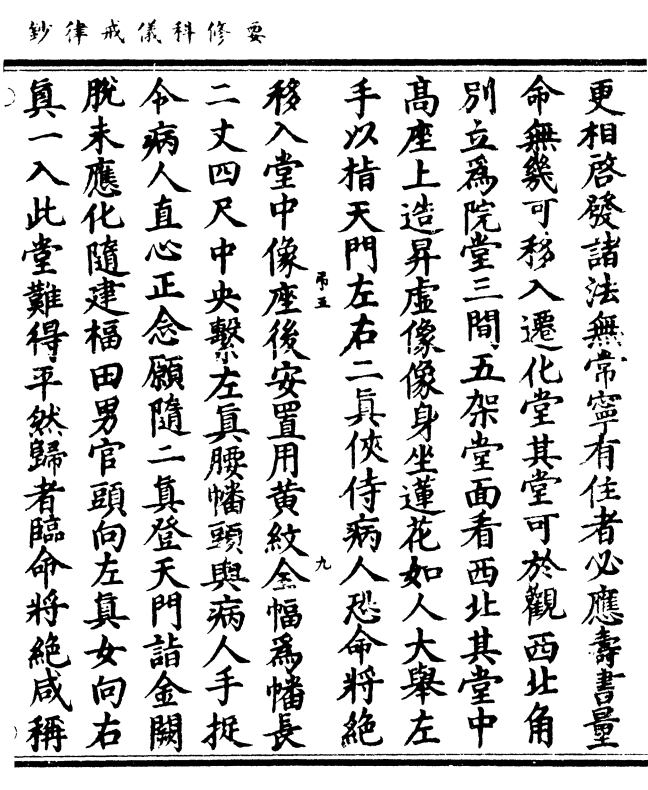 要修科儀戒律鈔
更相啓發諸法無常寧有住者必應壽書量
命無幾可移入遷化堂其堂可於觀西北角
別立爲院堂三間五架堂面看西北其堂中
髙座上造昇虛像像身坐蓮花如人大舉左
手以指天門左右二真俠侍病人恐命將絶
吊五
九
移入堂中像座後安置用黄紋全幅爲幡長
二丈四尺中央繫左真腰幡頭與病人手捉
令病人直心正念願隨二真登天門詣金闕
脱未應化隨建楅田男官頭向左真女向右
真一入此堂難得平然歸者臨命將絶咸稱